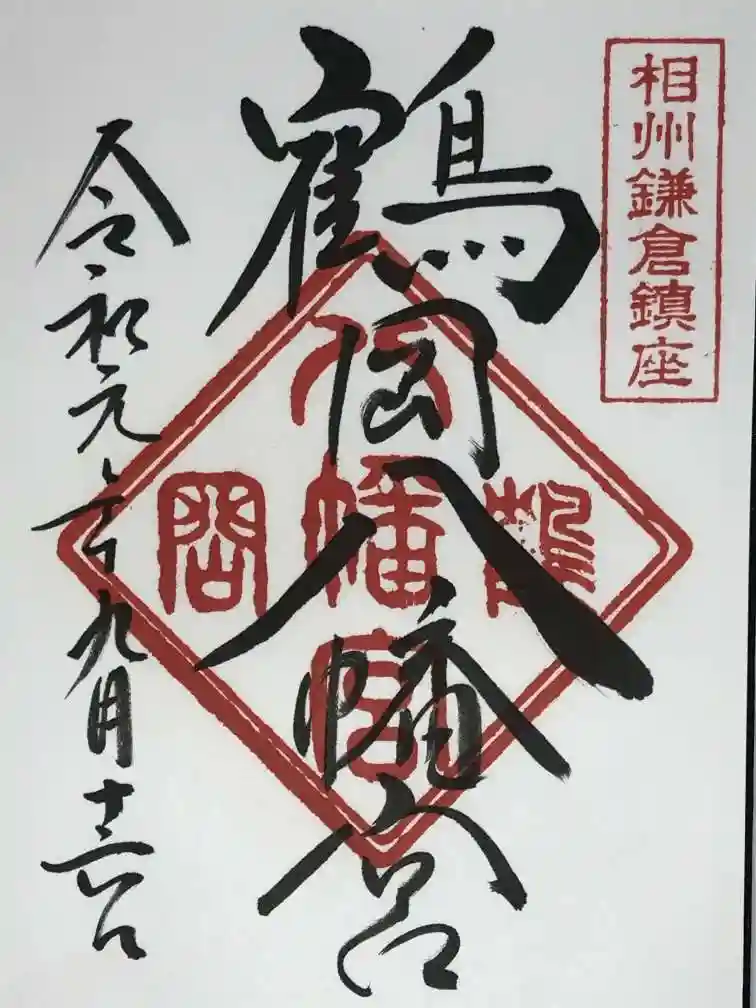 相州鎌倉鎮座
鶴岡八幡宮
鶴岡八幡宮
令和元年九月十六日